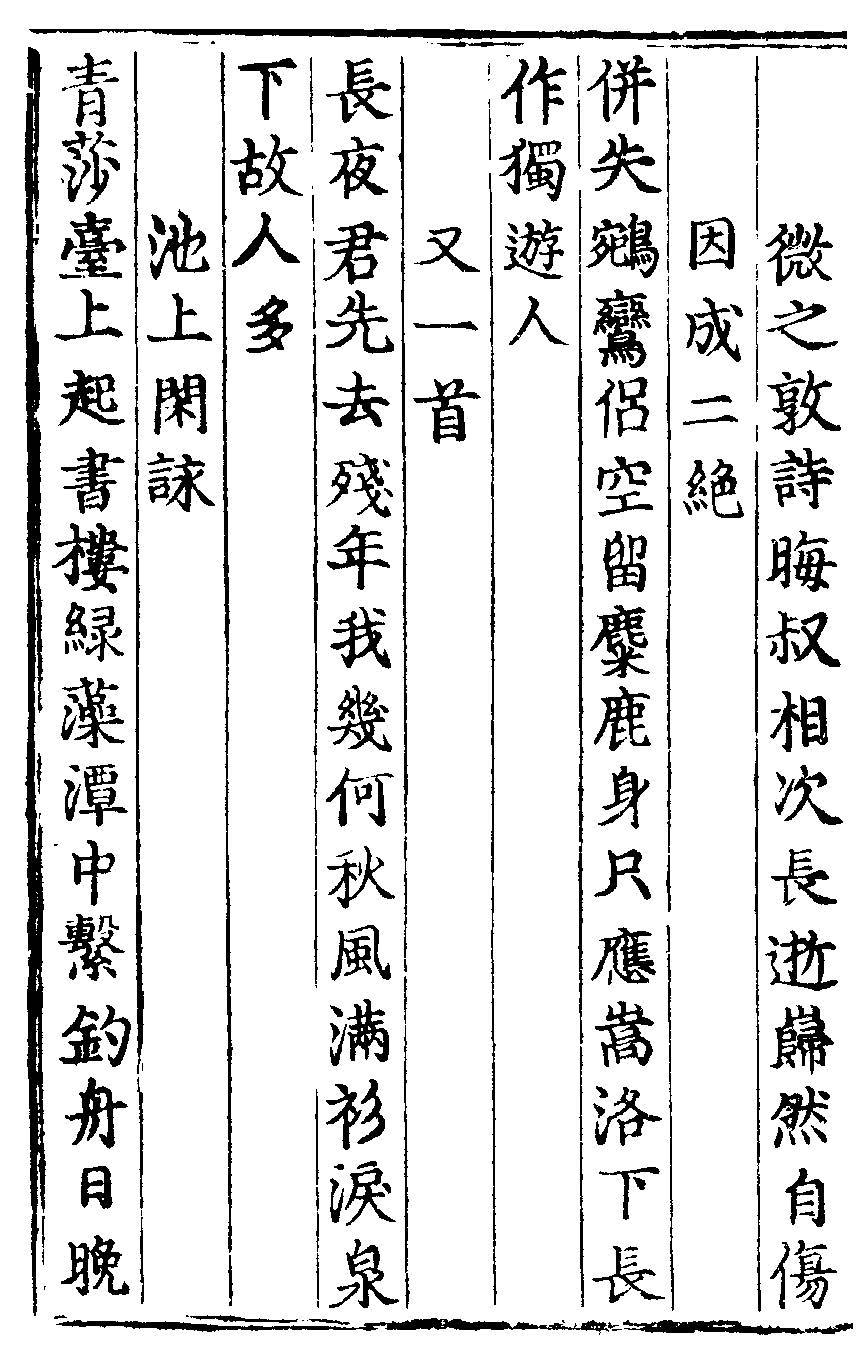 微之敦詩晦叔相次長逝巋然自傷
因成二絶
併失鵷鸞侶空留麋鹿身只應嵩洛下長
作獨遊人
又一首
長夜君先去殘年我幾何秋風滿衫淚泉
下故人多
池上閑詠
青莎臺上起書樓緑藻潭中繫釣舟日晚